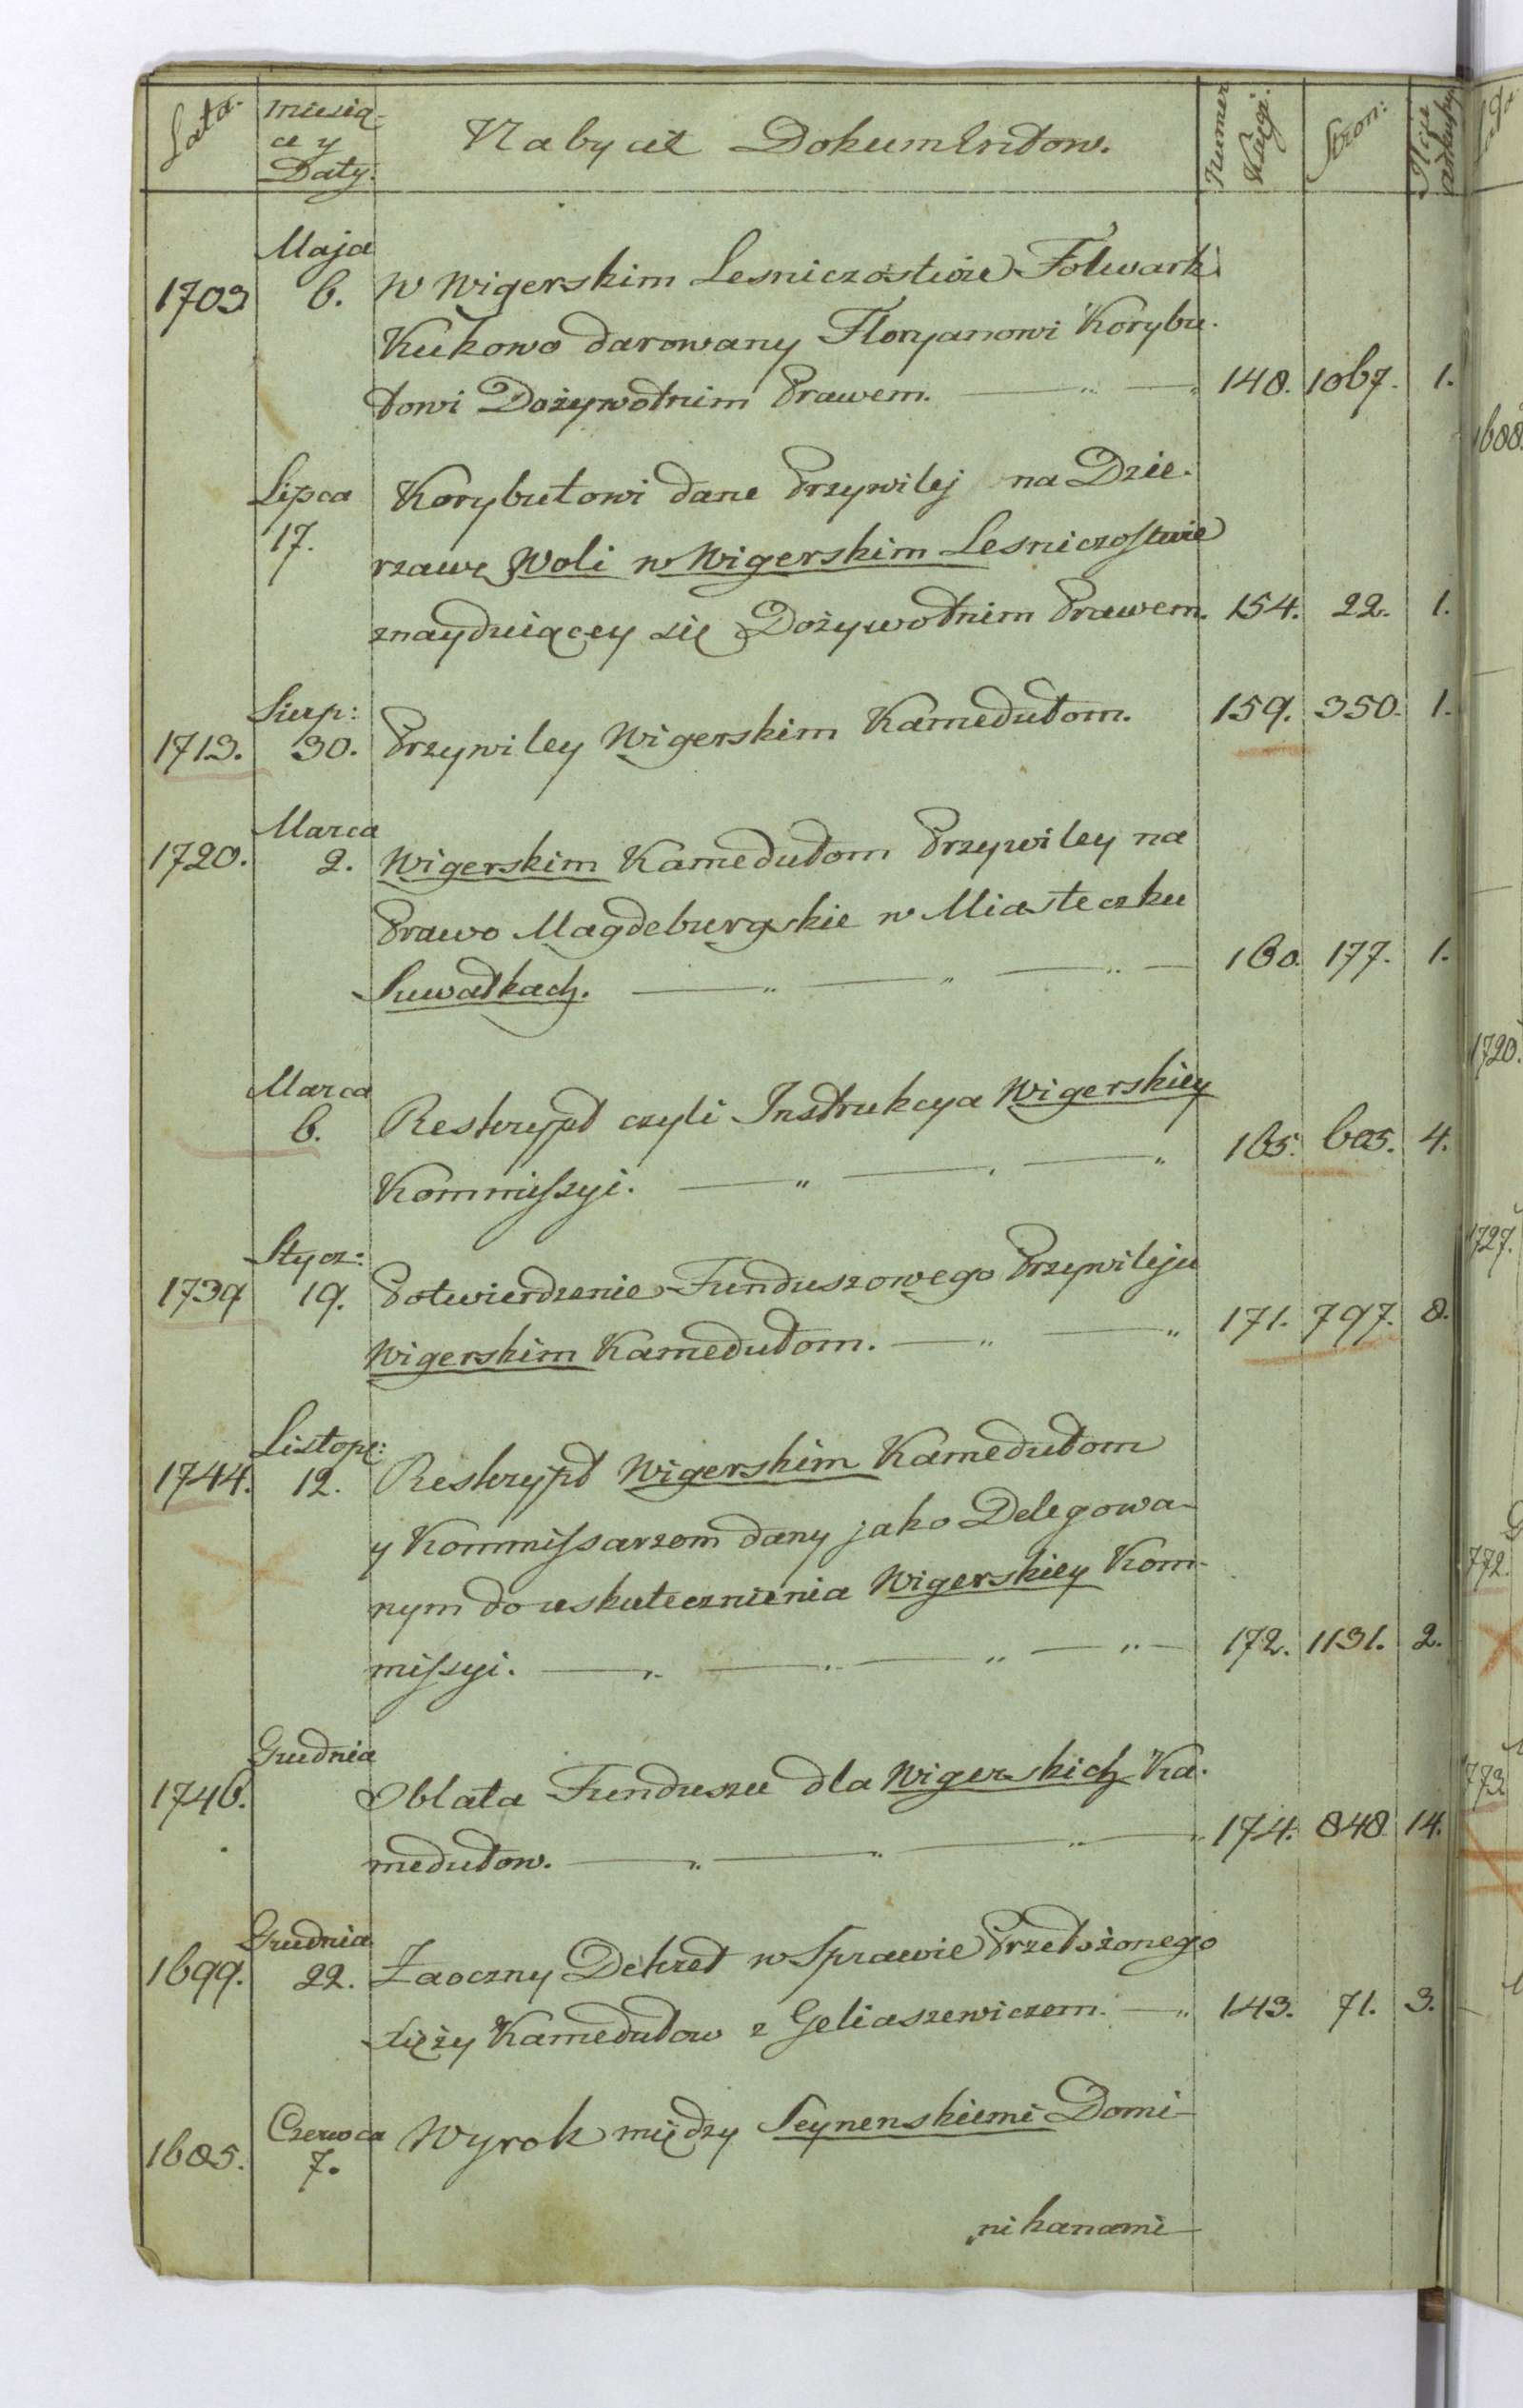 Lata. miesią- Nabycie Dokumentow. Numer Stron:
ce y Księgi.
Daty.
Maja
1703 6. W Wigerskim Lesniczostwie Folwark
Kukowo darowany Floryanowi Korybu-
towi Dożywotnim Prawem. 148. 1067. 1.
Lipca Korybutowi dane Przywilej na Dzie-
17. rzawę Woli w Wigerskim Lesniczostwie
znayduiącey się Dożywotnim Prawem. 154. 22. 1.
Sierp:
1713. 30. Przywiley Wigerskim Kamedułom. 159. 350. 1.
Marca
1720. 2. Wigerskim Kamedułom Przywiley na
Prawo Magdeburgskie w Miasteczku
Suwałkach. 160. 177. 1.
Marca
6. Reskrypt czyli Instrukcya Wigerskiey
Kommissyi. 165. 605. 4.
Stycz:
1739 19. Potwierdzenie Funduszowego Przywileju
Wigerskim Kamedułom. 171. 797. 8.
Listop:
1744. 12. Reskrypt Wigerskim Kamedułom
y Kommissarzom dany jako Delegowa-
nym do uskutecznienia Wigerskiey Kom-
missyi. 172. 1131. 2.
Grudnia
1746. Oblata Funduszu dla Wigerskich Ka-
medułow. 174. 848 14.
Grudnia
1699. 22. Zaoczny Dekret w Sprawie Przełożonego
Xięży Kamedułow z Geliaszewiczem. 143. 71. 3.
Czerwca
1685. 7. Wyrok między Seynenskiemi Domi-
nikanami
1688.
1720.
1727.
772.
773